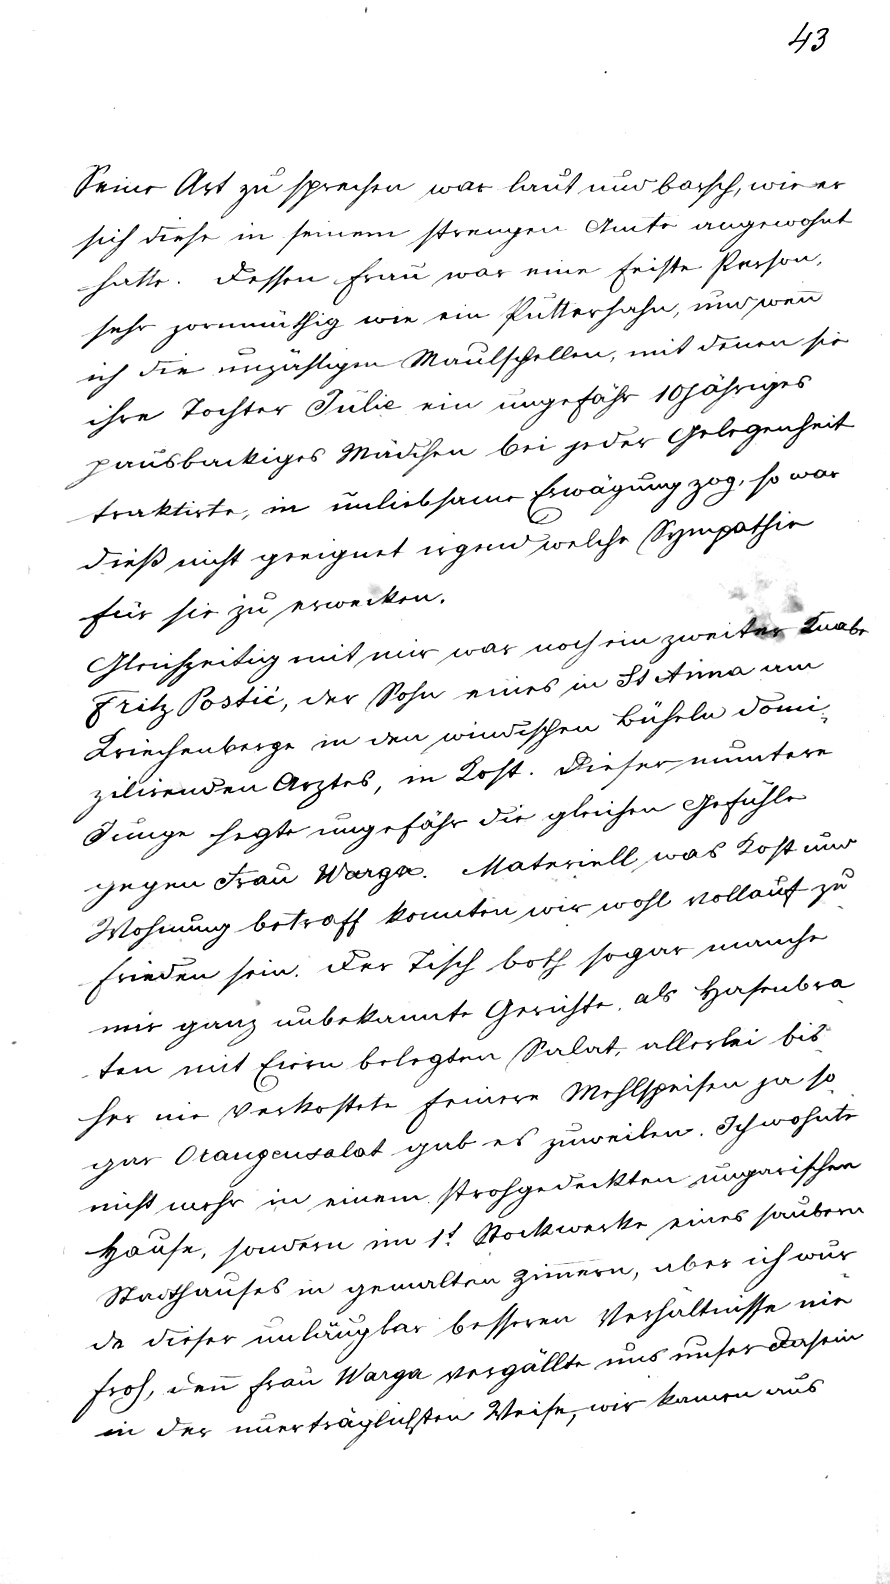 43
Seine Art zu sprechen war laut und barsch, wie er
sich diese in seinem strengen Amte angewohnt
hatte. Dessen Frau war eine feiste Person,
sehr zornmüthig wie ein Putterhahn, und wen̄
ich die unzähligen Maulschellen, mit denen sie
ihre Tochter Julie ein ungefähr 10jähriges
pausbackiges Mädchen bei jeder Gelegenheit
traktirte, in unliebsame Erwägung zog, so war
dieß nicht geeignet irgend welche Sympathie
für sie zu erwecken.
Gleichzeitig mit mir war noch ein zweiter Knabe
Fritz Postić, der Sohn eines in St Anna am
Kriechenberge in den windischen Büheln domi-
zilirenden Arztes, in Kost. Dieser muntere
Junge hegte ungefähr die gleichen Gefühle
gegen Frau Warga. Materiell was Kost und
Wohnung betraff konnten wir wohl vollauf zu
frieden sein. Der Tisch both sogar manche
mir ganz unbekannte Gerichte, als Hasenbra
ten mit Eiern belegten Salat, allerlei bis
her nie verkostete feinere Mehlspeisen ja so
gar Orangensalat gab es zuweilen. Ich wohnte
nicht mehr in einem strohgedeckten ungarischen
Hause, sondern im 1t Stockwerke eines saubern
Stadthauses in gemalten Zim̄ern, aber ich wur
de dieser unläugbar besseren Verhältnisse nie
froh, den̄ Frau Warga vergällte uns unser Dasein
in der unerträglichsten Weise, wir kamen aus